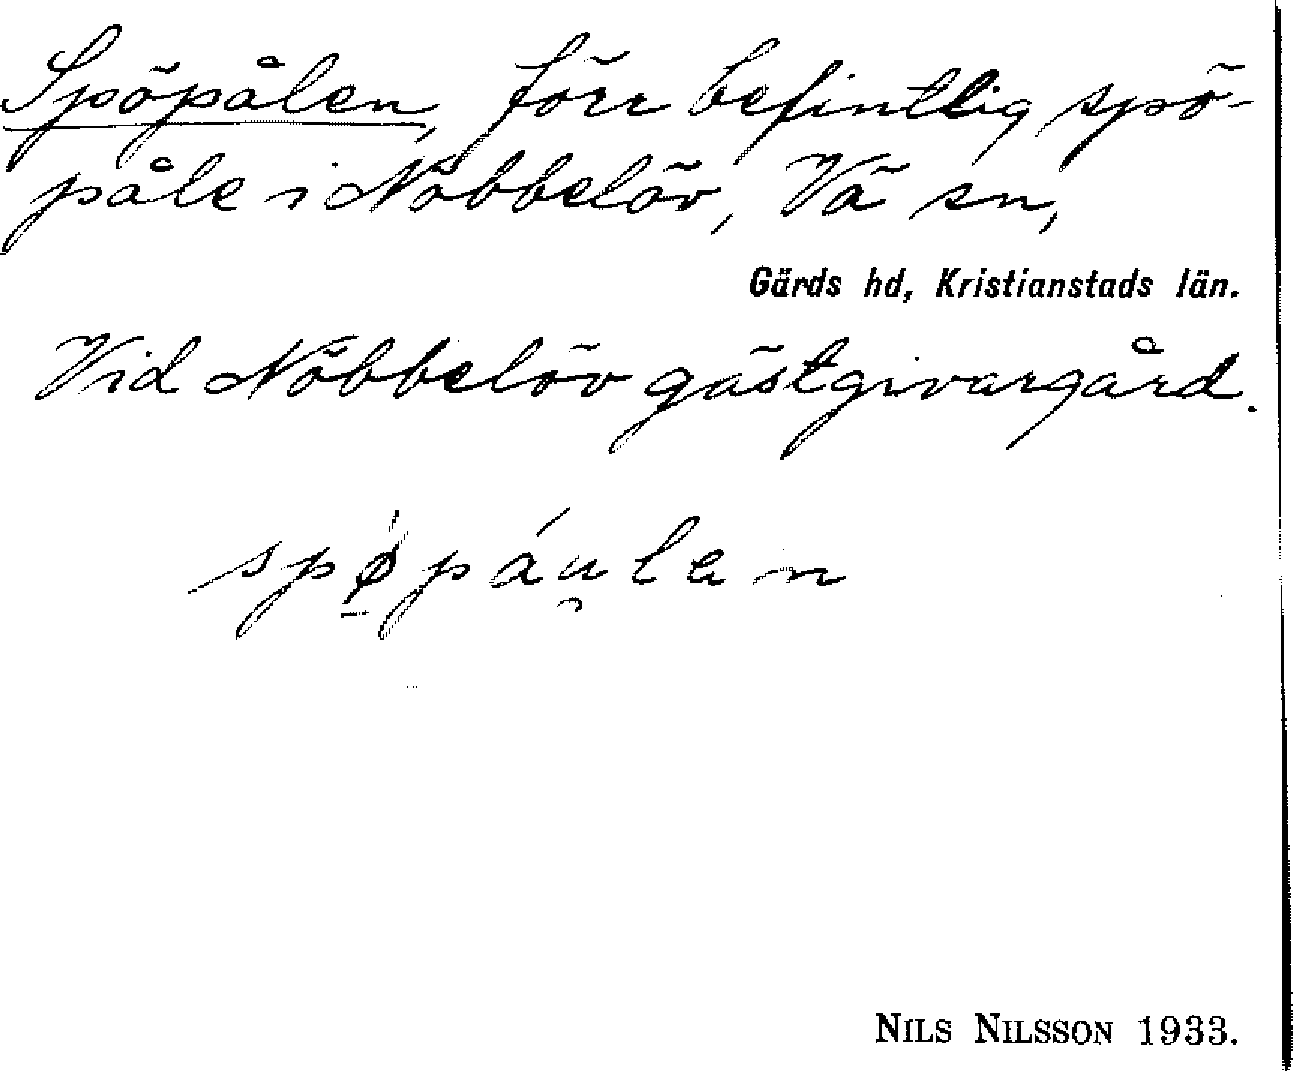 Spöpålen, förr befintlig spö-
påle i Nöbbelöv, Vä sn,
Gärds hd, Kristianstads län.
Vid Nöbbelöv gästgivargård.
spǿ̱páu̯len
NILS NILSSON 1933.